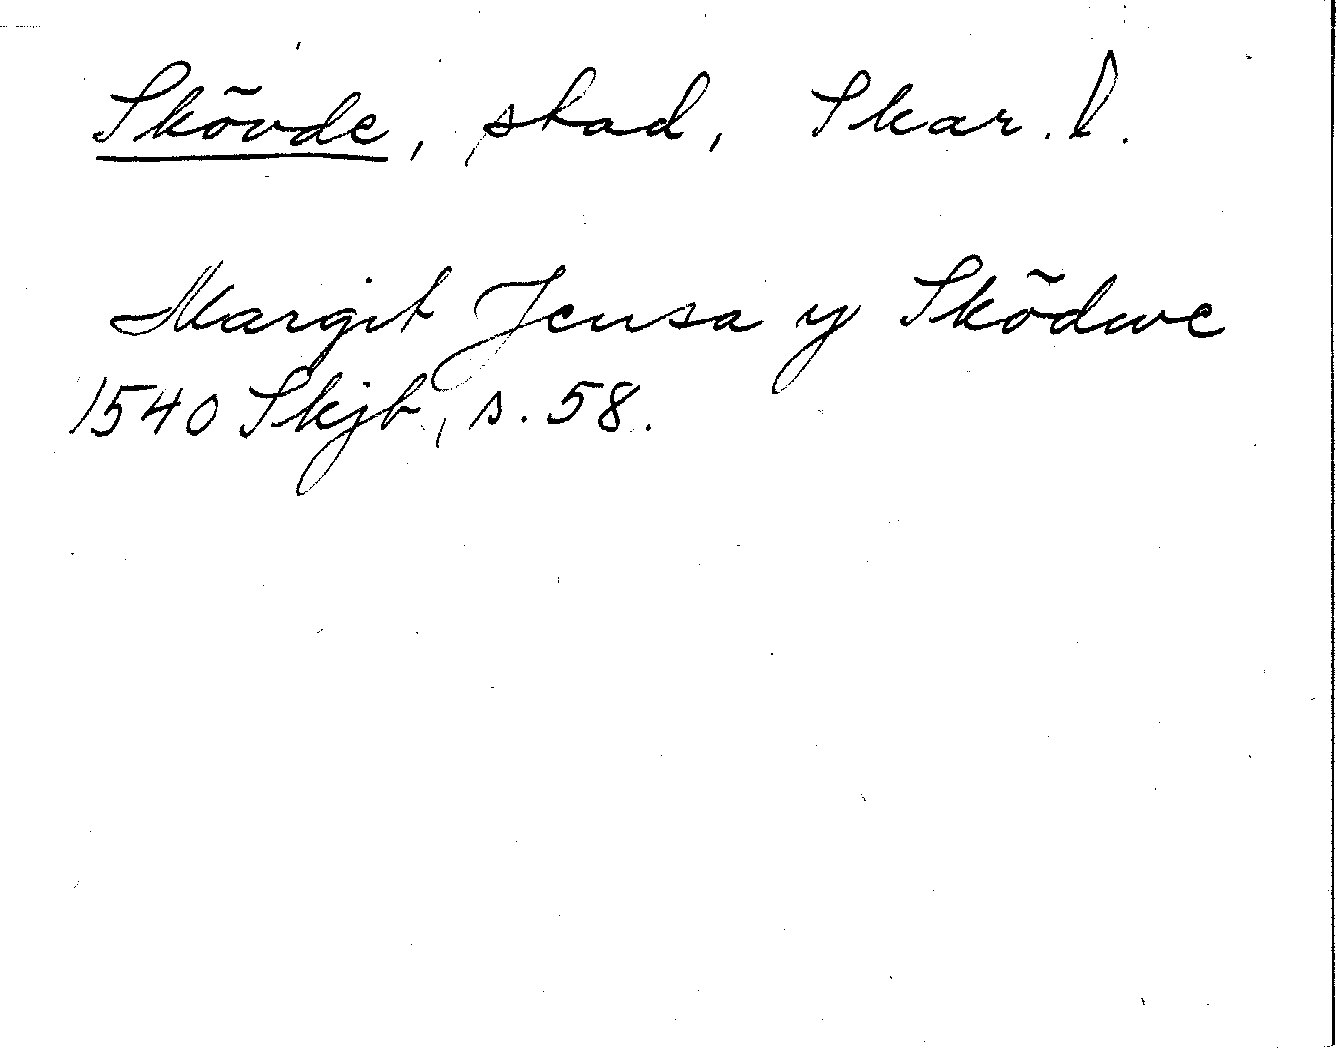 Skövde, stad, Skar. l.
Margit Jensa y Sködwe
1540 Skjb, s. 58.